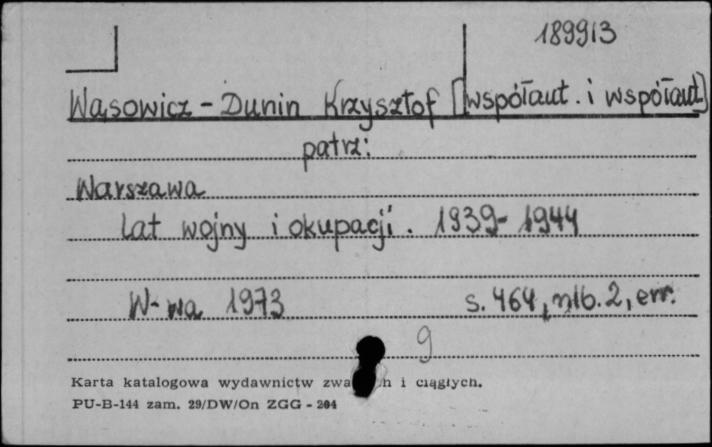 189913
Wąsowicz - Dunin Krzysztof [współaut. i współaut.]
patrz:
Warszawa
lat wojny i okupacji. 1939-1944
W-wa 1973 s. 464, nlb. 2, err.
9
Karta katalogowa wydawnictw zwa h i ciągłych.
PU-B-144 zam. 29/DW/On ZGG - 204